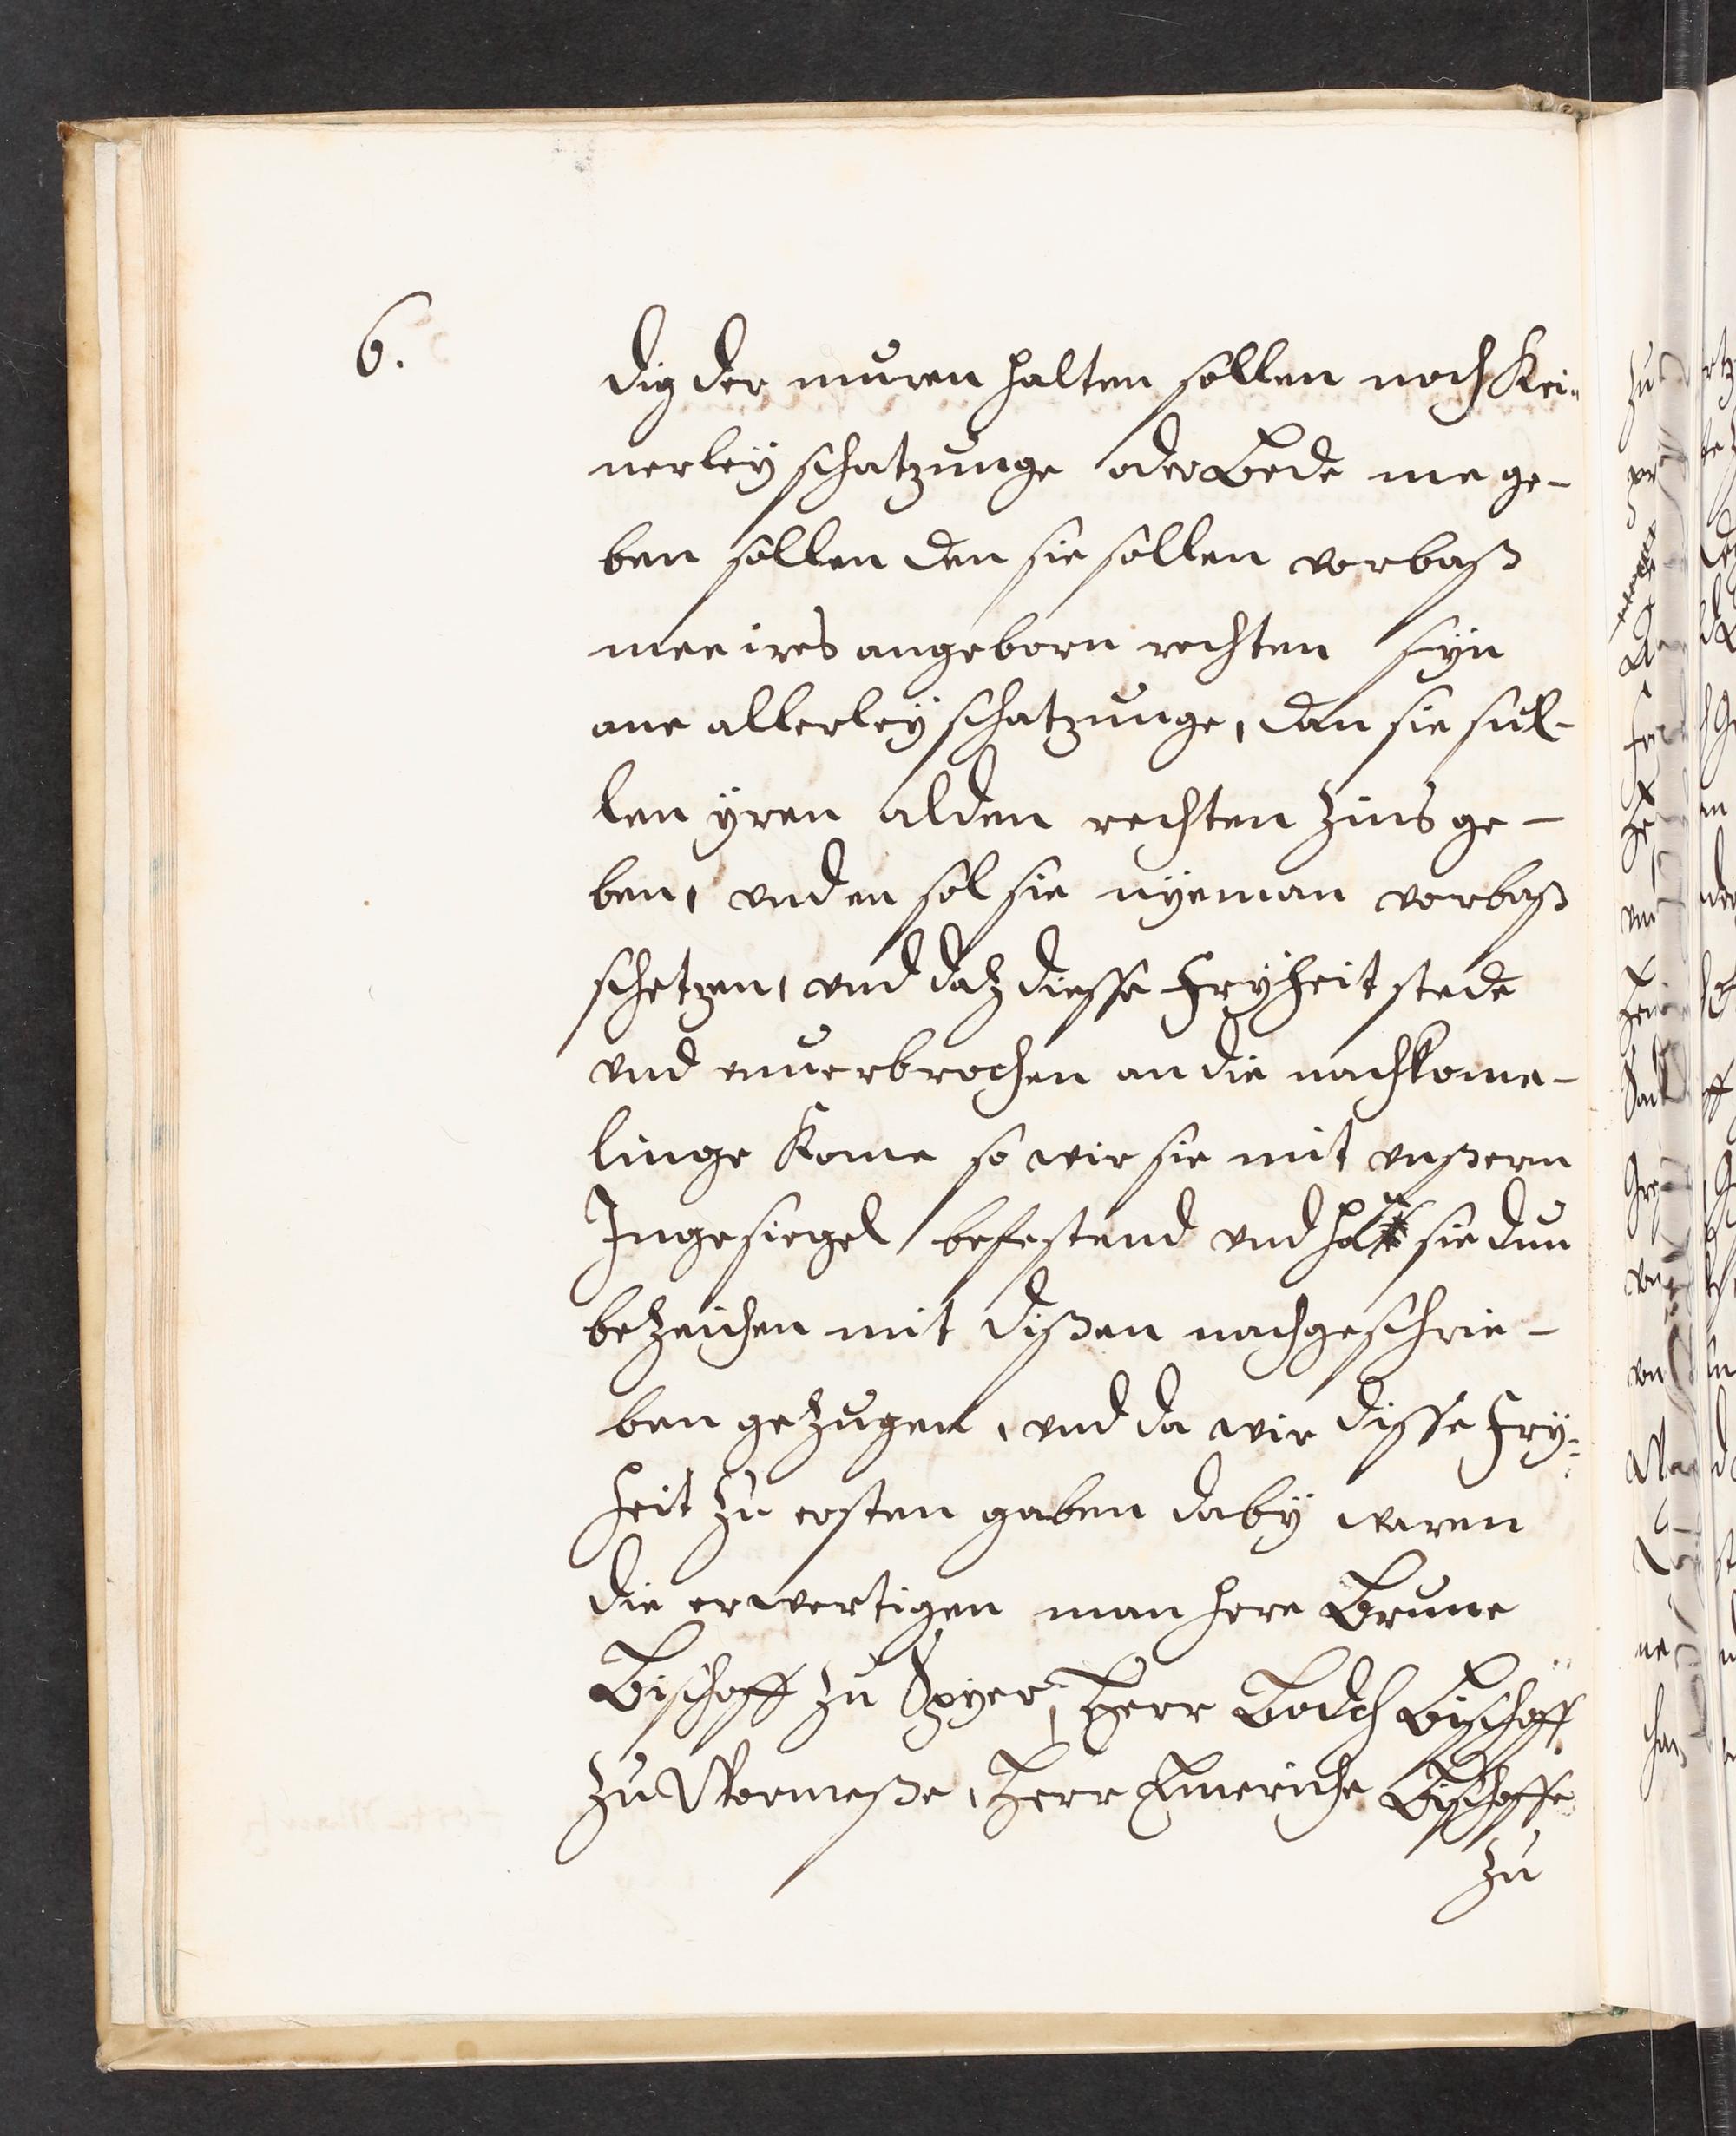 6.
dig der muren halten sollen noch Kei-
nerley schatzunge oder Bede me ge-
ben sollen den sie sollen vorbaß
mee ires angeborn rechten syn
ane allerley schatzunge, dan sie sul-
len yren alden rechten Zins ge-
ben, vnd en sol sie nyeman vorbaß
schetzen, vnd daz diesse Fryheit stede
vnd vnuerbrochen an die nachkome-
linge Kome so wir sie mit vnßerm
Ingesiegel befestend vnd sie dun
bezeichen mit dißen nachgeschrie-
ben gezugen, vnd da wir disse Fry-
heit zu ersten gaben daby waren
die erwertigen man here Brune
Bischoff zu Spyer, Herr Bischoff
zu Wormeße, Herr Emeriche Bischoffe
zu